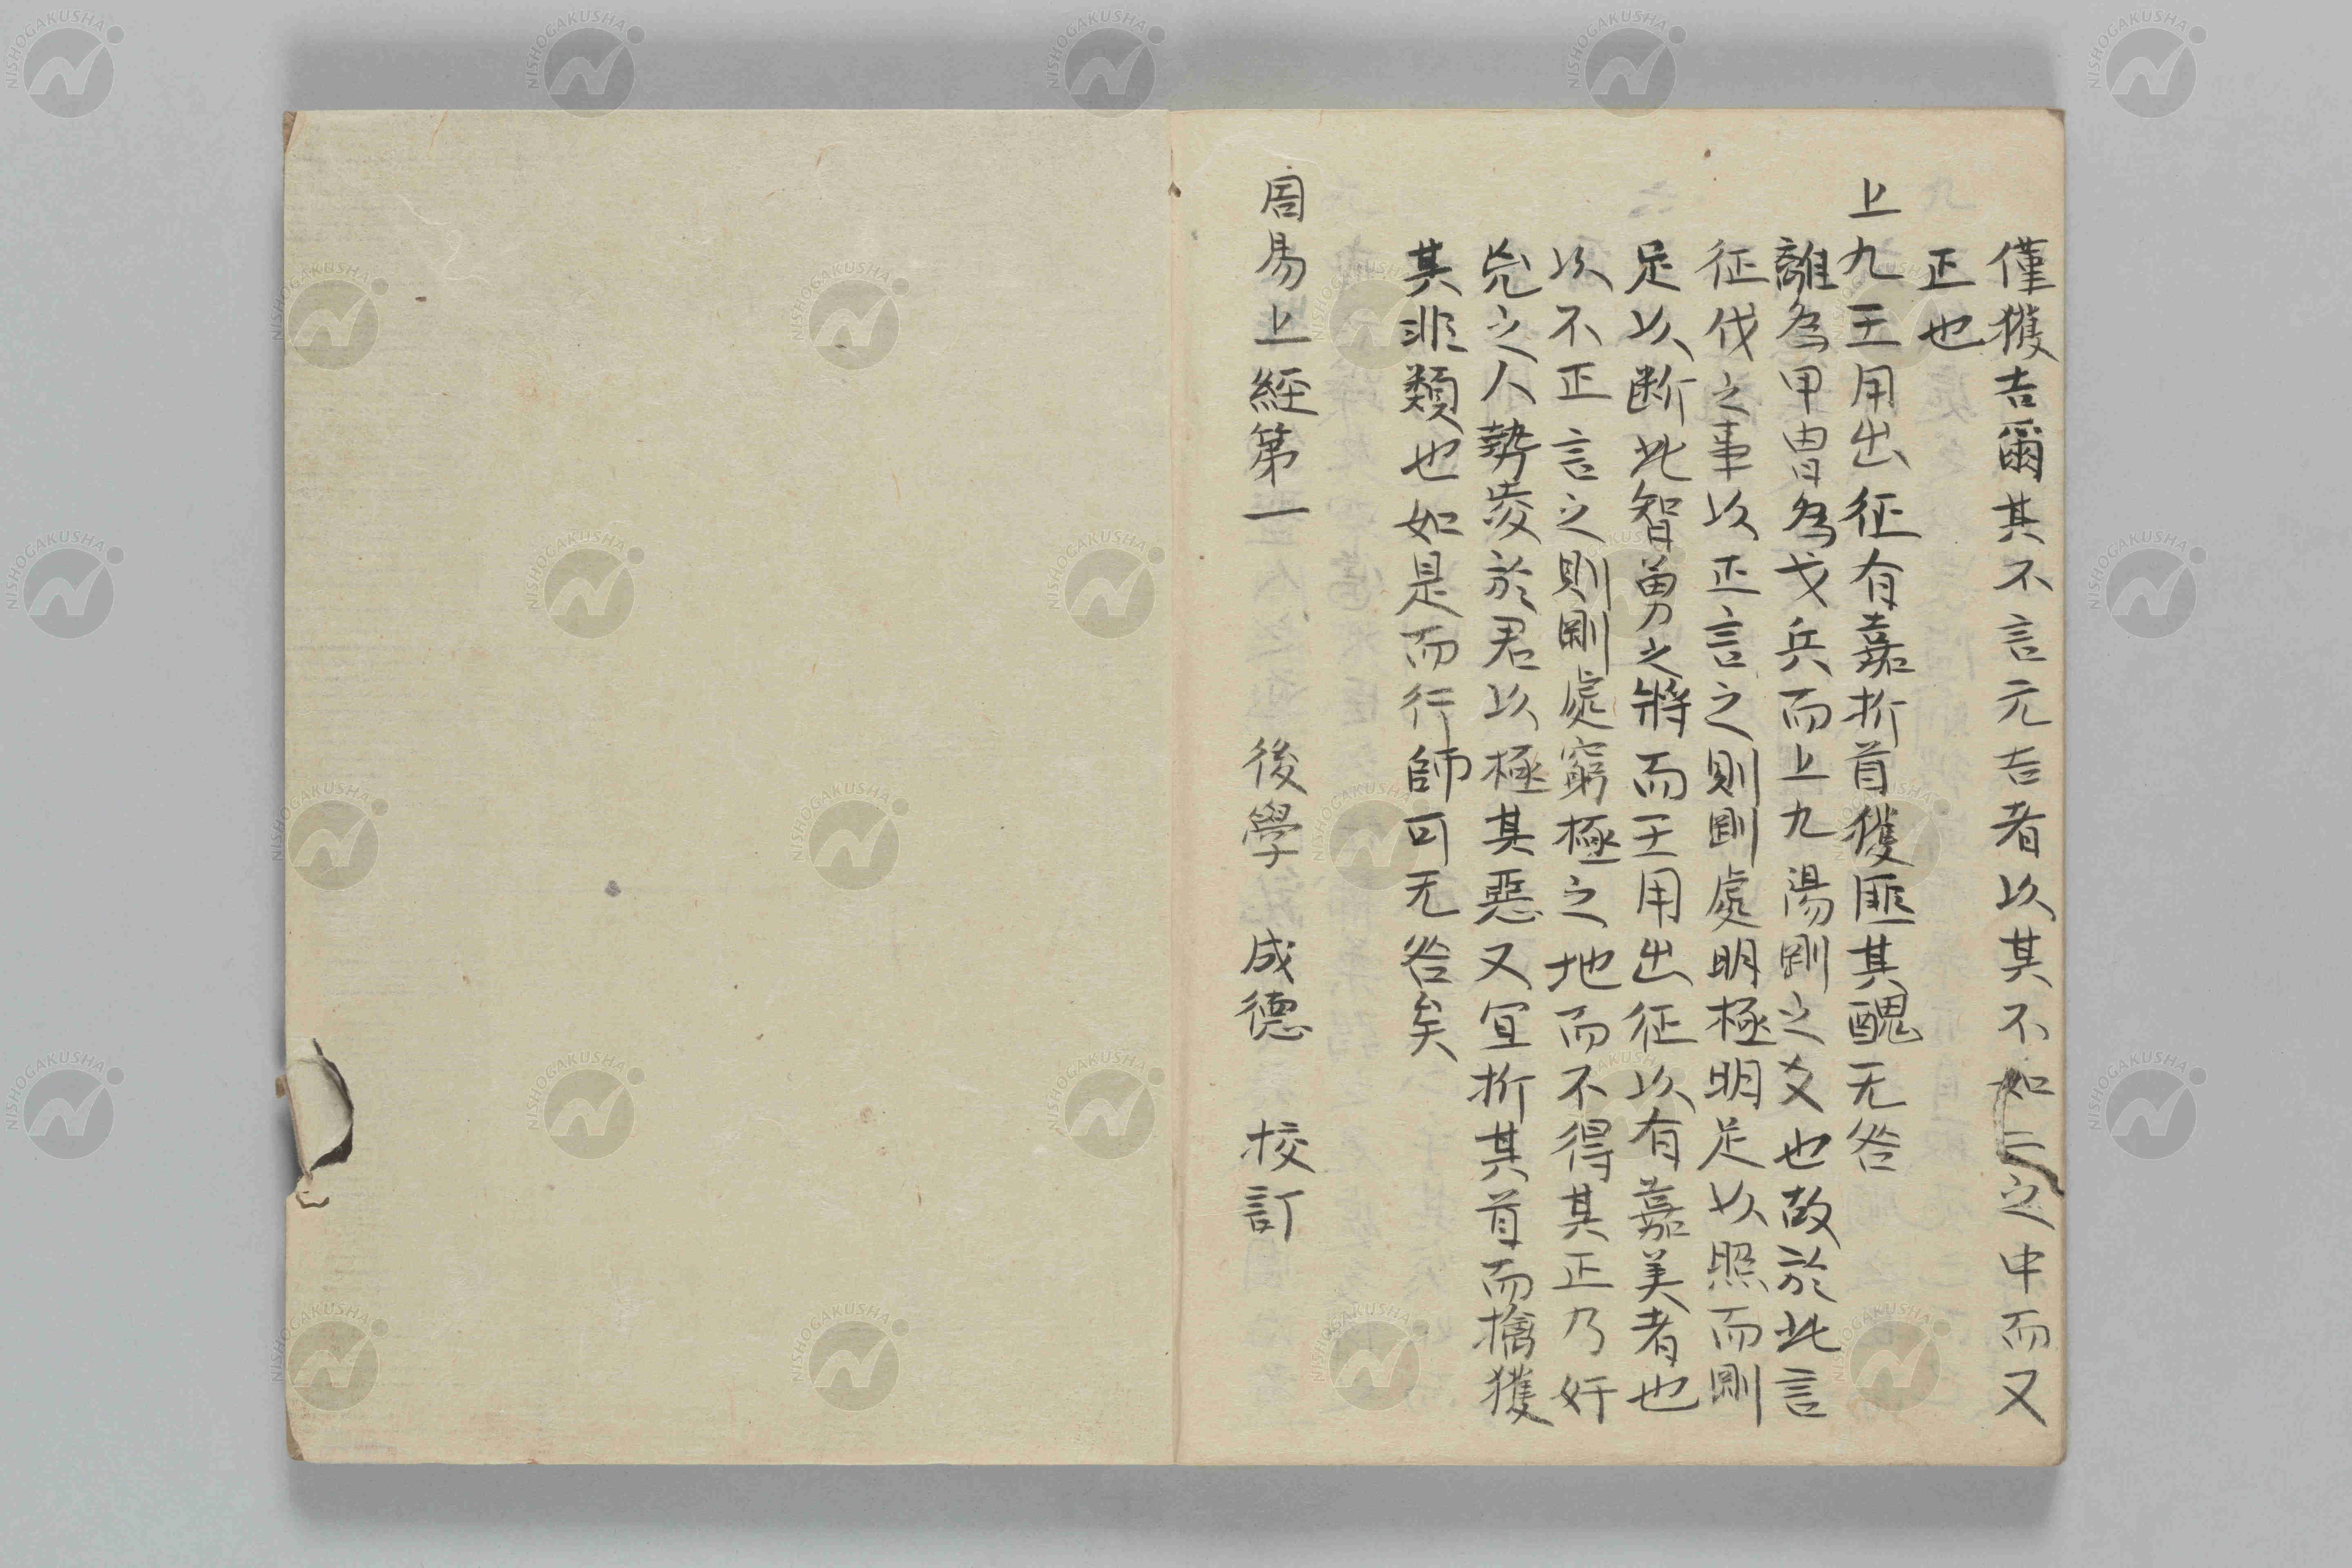 僅獲吉爾其不言元吉者以其不如二之中而又
正也
上九王用出征有嘉折首獲匪其醜无咎
離為甲冑為戈兵而上九陽剛之爻也故於此言
征伐之事以正言之則剛處明極明足以照而剛
足以断此智勇之將而王用出征以有嘉美者也
以不正言之則剛處窮極之地而不得其正乃奸
兇之人勢凌於君以極其惡又宜折其首而擒獲
其非類也如是而行師可无咎矣
周易上經第一 後學 成德 校訂
NISHOGAKUSHA